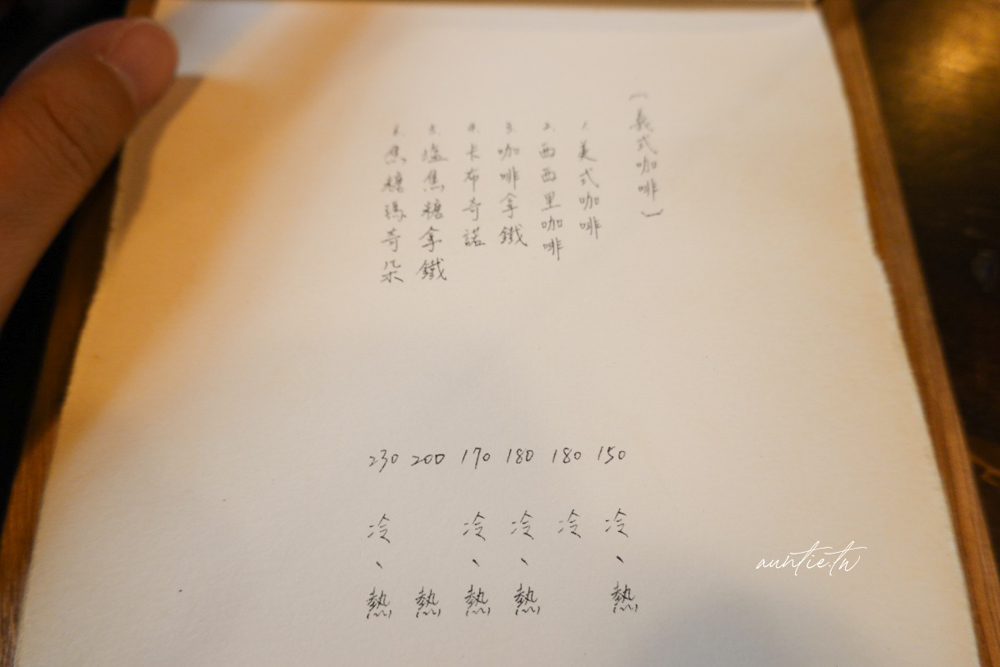 【義式咖啡】
1. 美式咖啡
2. 西西里咖啡
3. 咖啡拿鐵
4. 卡布奇諾
5. 塩焦糖拿鐵
6. 焦糖瑪奇朵
150 冷、熱
180 冷
180 冷、熱
170 冷、熱
200 熱
230 冷、熱
auntie.tw